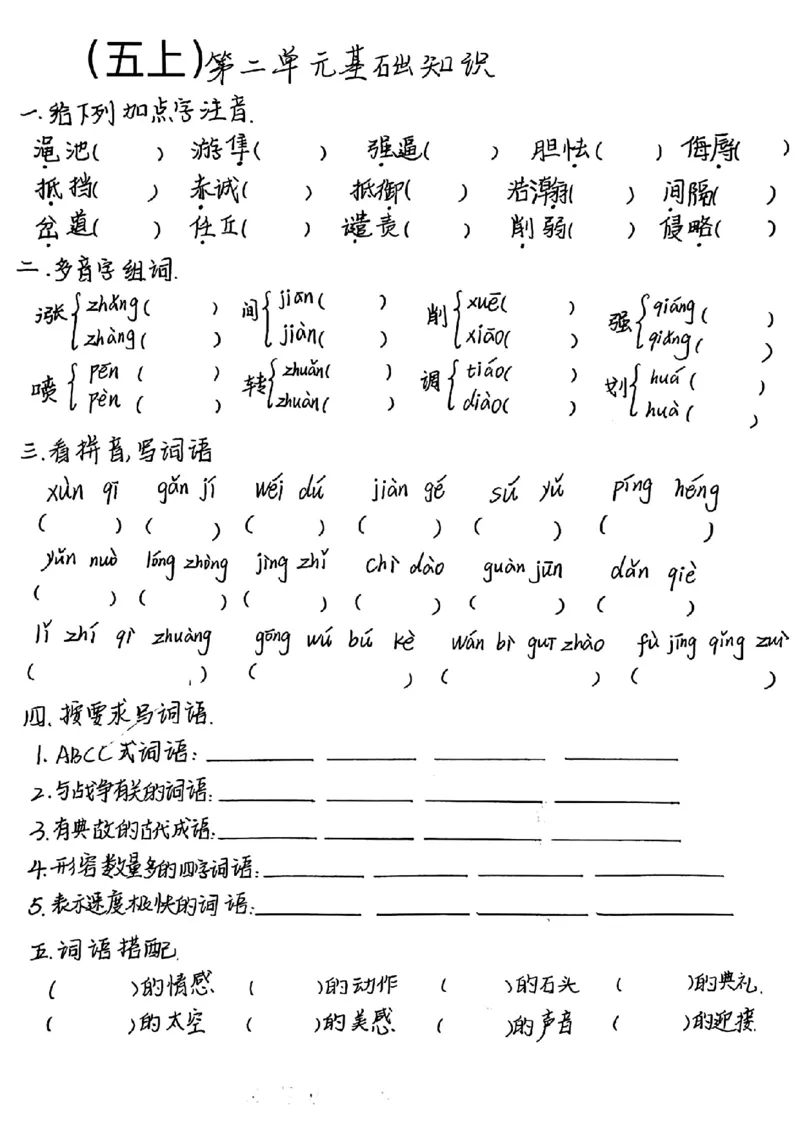 (五上)第二单元基础知识
一.给下列加点字注音.
渑池( ) 游隼( ) 强逼( ) 胆怯( ) 侮辱( )
抵挡( ) 赤诚( ) 抵御( ) 浩瀚( ) 间隔( )
岔道( ) 任丘( ) 谴责( ) 削弱( ) 侵略( )
二.多音字组词.
涨{zhǎng( ) 间{jiān( ) 削{xuē( ) 强{qiáng( )
zhàng( ) jiàn( ) xiāo( ) qiǎng( )
喷{pēn( ) 转{zhuǎn( ) 调{tiáo( ) 划{huá( )
pèn( ) zhuàn( ) diào( ) huà( )
三.看拼音,写词语
xùn qī gǎn jí wéi dú jiàn gé sú yǔ píng héng
( ) ( ) ( ) ( ) ( ) ( )
yǔn nuò lóng zhòng jìng zhǐ chì dào guàn jūn dǎn qiè
( ) ( ) ( ) ( ) ( ) ( )
lǐ zhí qì zhuàng gōng wú bú kè wán bì guī zhào fù jīng qǐng zuì
( ) ( ) ( ) ( )
四.按要求写词语.
1.ABCC式词语:
2.与战争有关的词语:
3.有典故的古代成语:
4.形容数量多的四字词语:
5.表示速度极快的词语:
五.词语搭配.
( )的情感 ( )的动作 ( )的石头 ( )的典礼.
( )的太空 ( )的美感 ( )的声音 ( )的迎接.